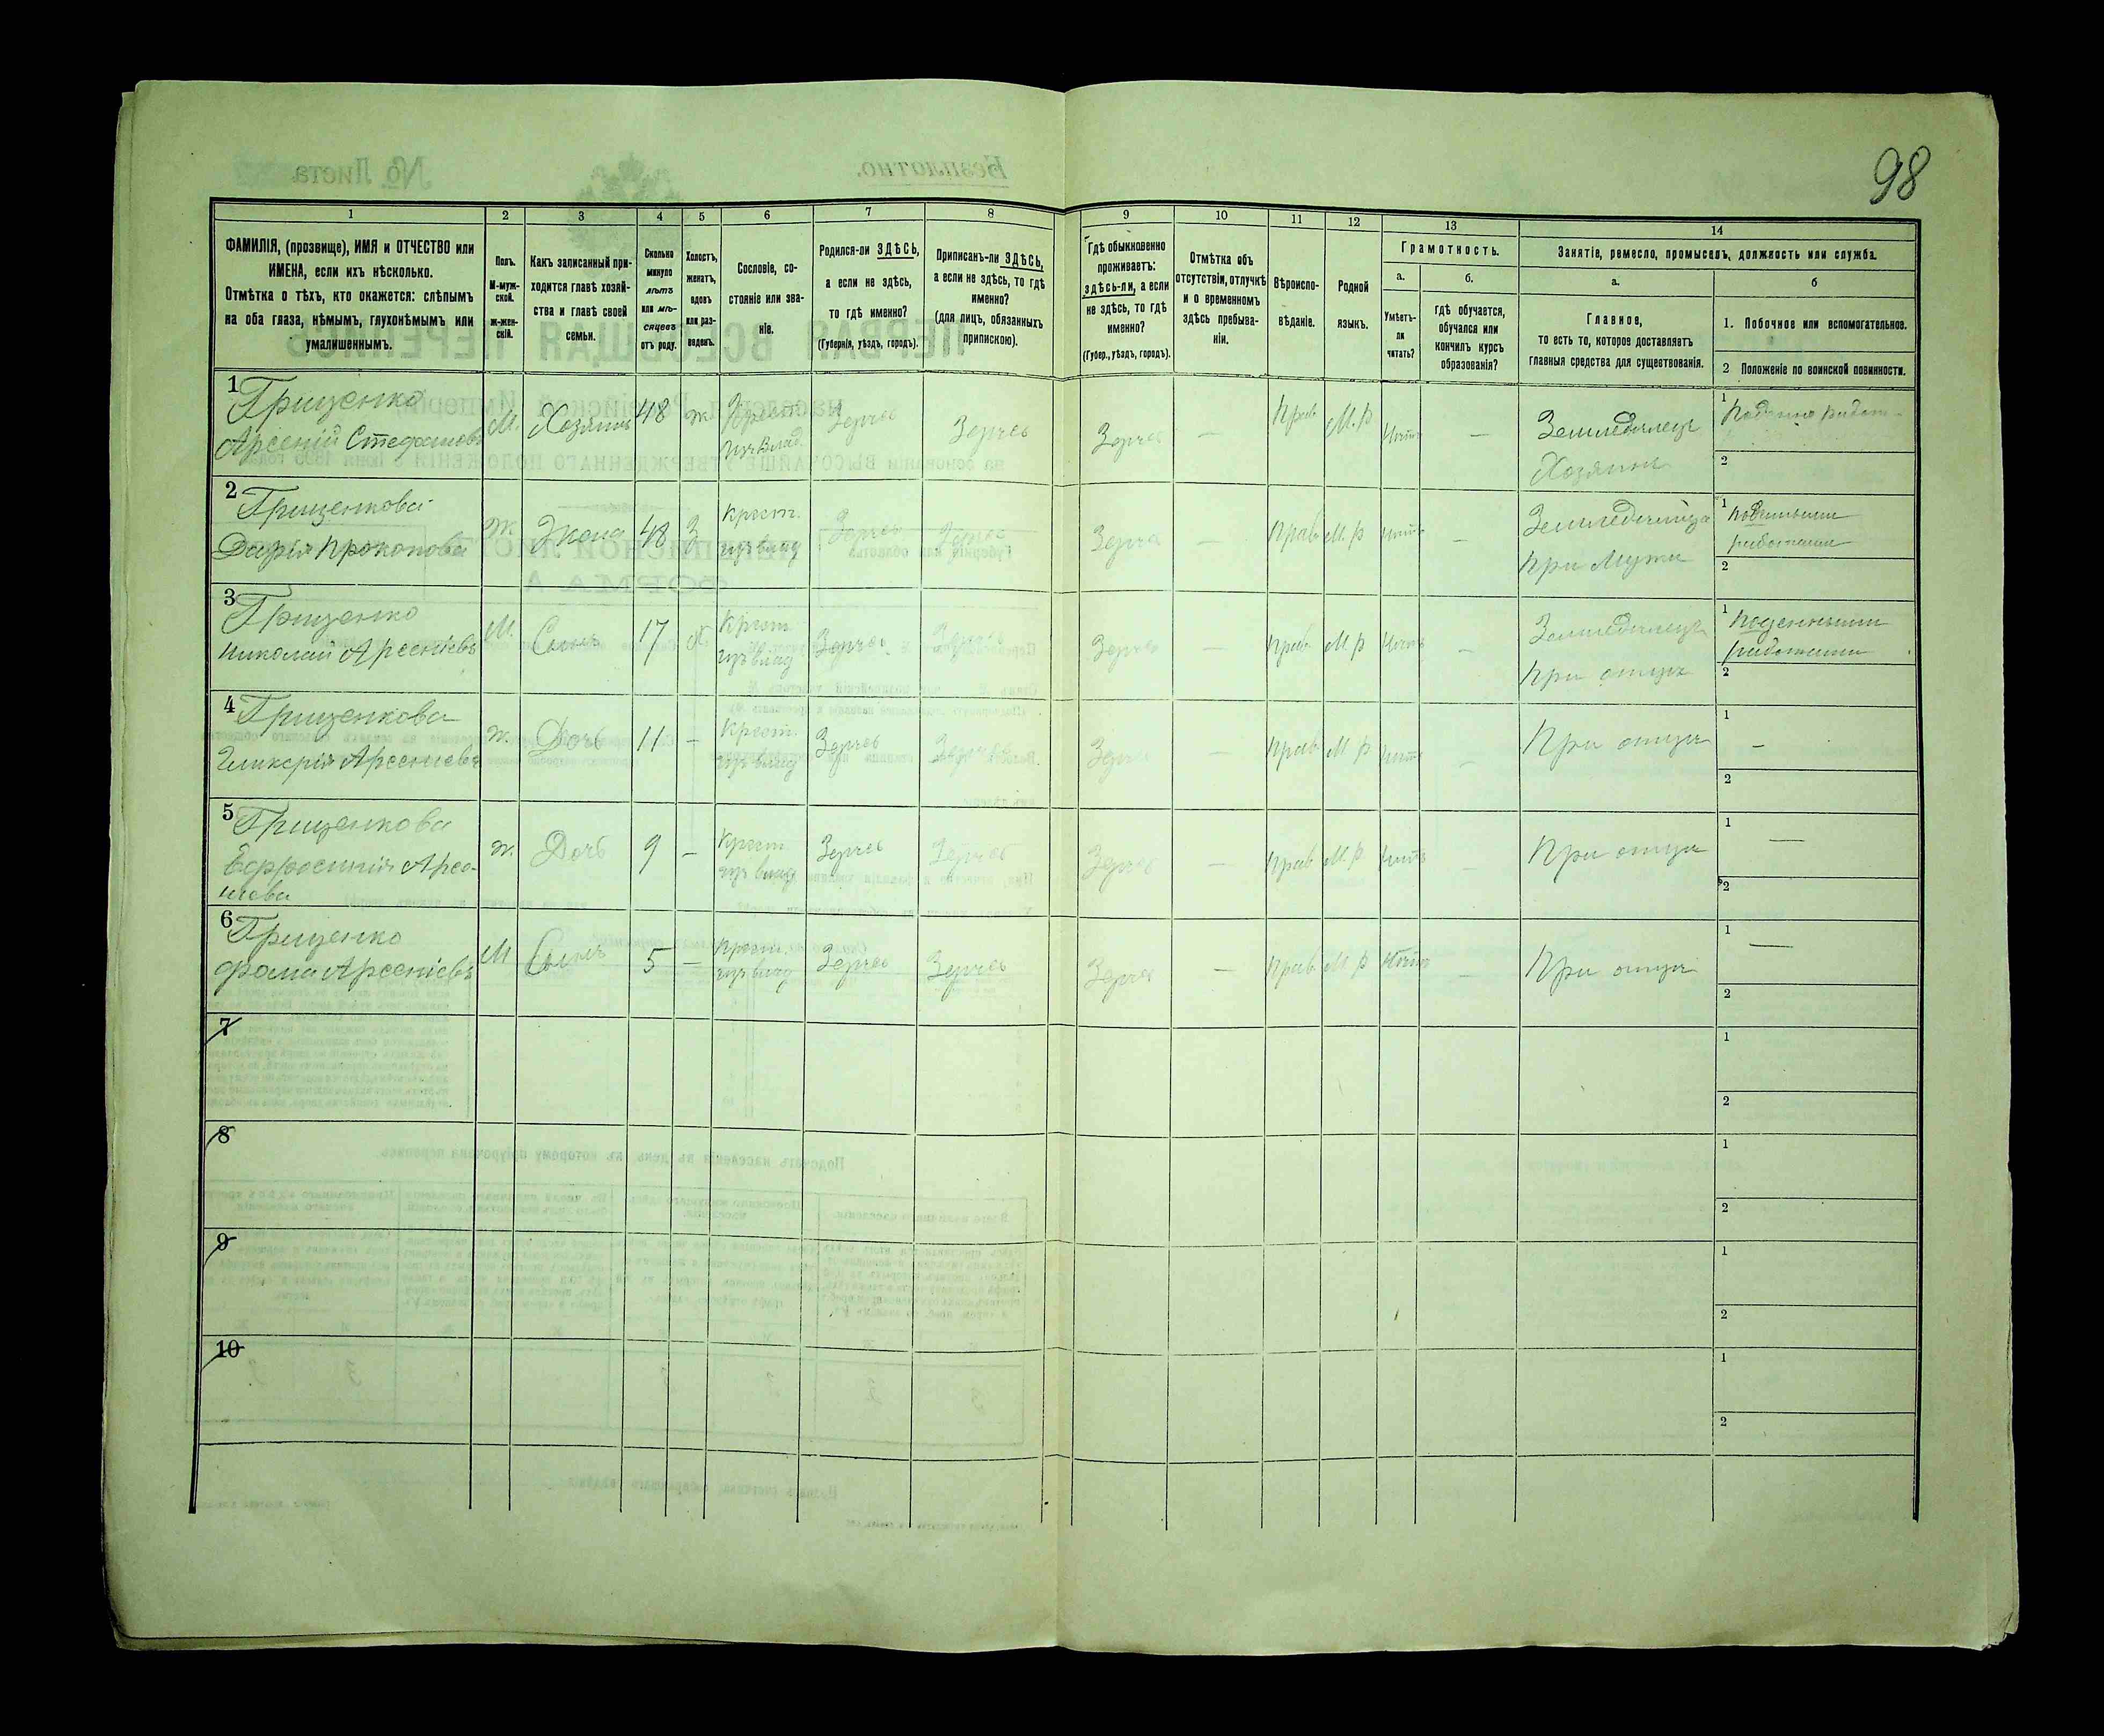 98
1 2 3 4 5 6 7 8 9 10 11 12 13 14
ФАМИЛІЯ, (прозвище), ИМЯ и ОТЧЕСТВО или
ИМЕНА, если ихъ нѣсколько.
Отмѣтка о тѣхъ, кто окажется: слѣпымъ
на оба глаза, нѣмымъ, глухонѣмымъ или
умалишеннымъ.
Полъ.
М-муж-
ской.
Ж-жен-
скій.
Какъ записанный при-
ходится главѣ хозяй-
ства и главѣ своей
семьи.
Сколько
минуло
лѣтъ
или мѣ-
сяцевъ
отъ роду.
Холостъ,
женатъ,
вдовъ
или раз-
веденъ.
Сословіе, со-
стояніе или зва-
ніе.
Родился-ли ЗДѢСЬ,
а если не здѣсь,
то гдѣ именно?
(Губернія, уѣздъ, городъ).
Приписанъ-ли ЗДѢСЬ,
а если не здѣсь, то гдѣ
именно?
(для лицъ, обязанныхъ
припискою).
Гдѣ обыкновенно
проживаетъ:
здѣсь-ли, а если
не здѣсь, то гдѣ
именно?
(Губер., уѣздъ, городъ).
Отмѣтка объ
отсутствіи, отлучкѣ
и о временномъ
здѣсь пребыва-
ніи.
Вѣроиспо-
вѣданіе.
Родной
языкъ.
Грамотность.
а.
Умѣетъ-
ли
читать?
б.
Гдѣ обучается,
обучался или
кончилъ курсъ
образованія?
Занятіе, ремесло, промыселъ, должность или служба.
а.
Главное,
то есть то, которое доставляетъ
главныя средства для существованія.
б
1. Побочное или вспомогательное.
2 Положеніе по воинской повинности.
1 Грищенко
Арсеній Стефановъ
М. Хозяинъ 48 ж Крест.
Здѣсь Здѣсь Здѣсь — Прав М. р — Земледѣлецъ
Хозяинъ
1
2
2 Грищенкова
Дарія Прокопова
Ж Жена 48 З Крест.
Здѣсь Здѣсь Здѣсь — Прав М. р —
при Мужи
1 Поденными
работами
2
3 Грищенко
Николай Арсеніевъ
М. Сынъ 17 Х Крест
Здѣсь Здѣсь Здѣсь — Прав М р — Земледѣлецъ
при отцѣ
1 Поденными
работами
2
4 Грищенкова
Гликерія Арсеніева
ж. Дочь 11 — Крест.
Здѣсь Здѣсь Здѣсь — Прав М р — При отцѣ
1 —
2
5 Грищенкова
Ефросинія Арсе-
ніева
ж. Дочь 9 — Крест
Здѣсь Здѣсь Здѣсь — Прав М. р. При отцѣ
1 —
2
6 Грищенко
Фома Арсеніевъ
М Сынъ 5 — Крест.
Здѣсь Здѣсь Здѣсь — Прав М р — При отцѣ
1 —
2
7
1
2
8
1
2
9
1
2
10
1
2